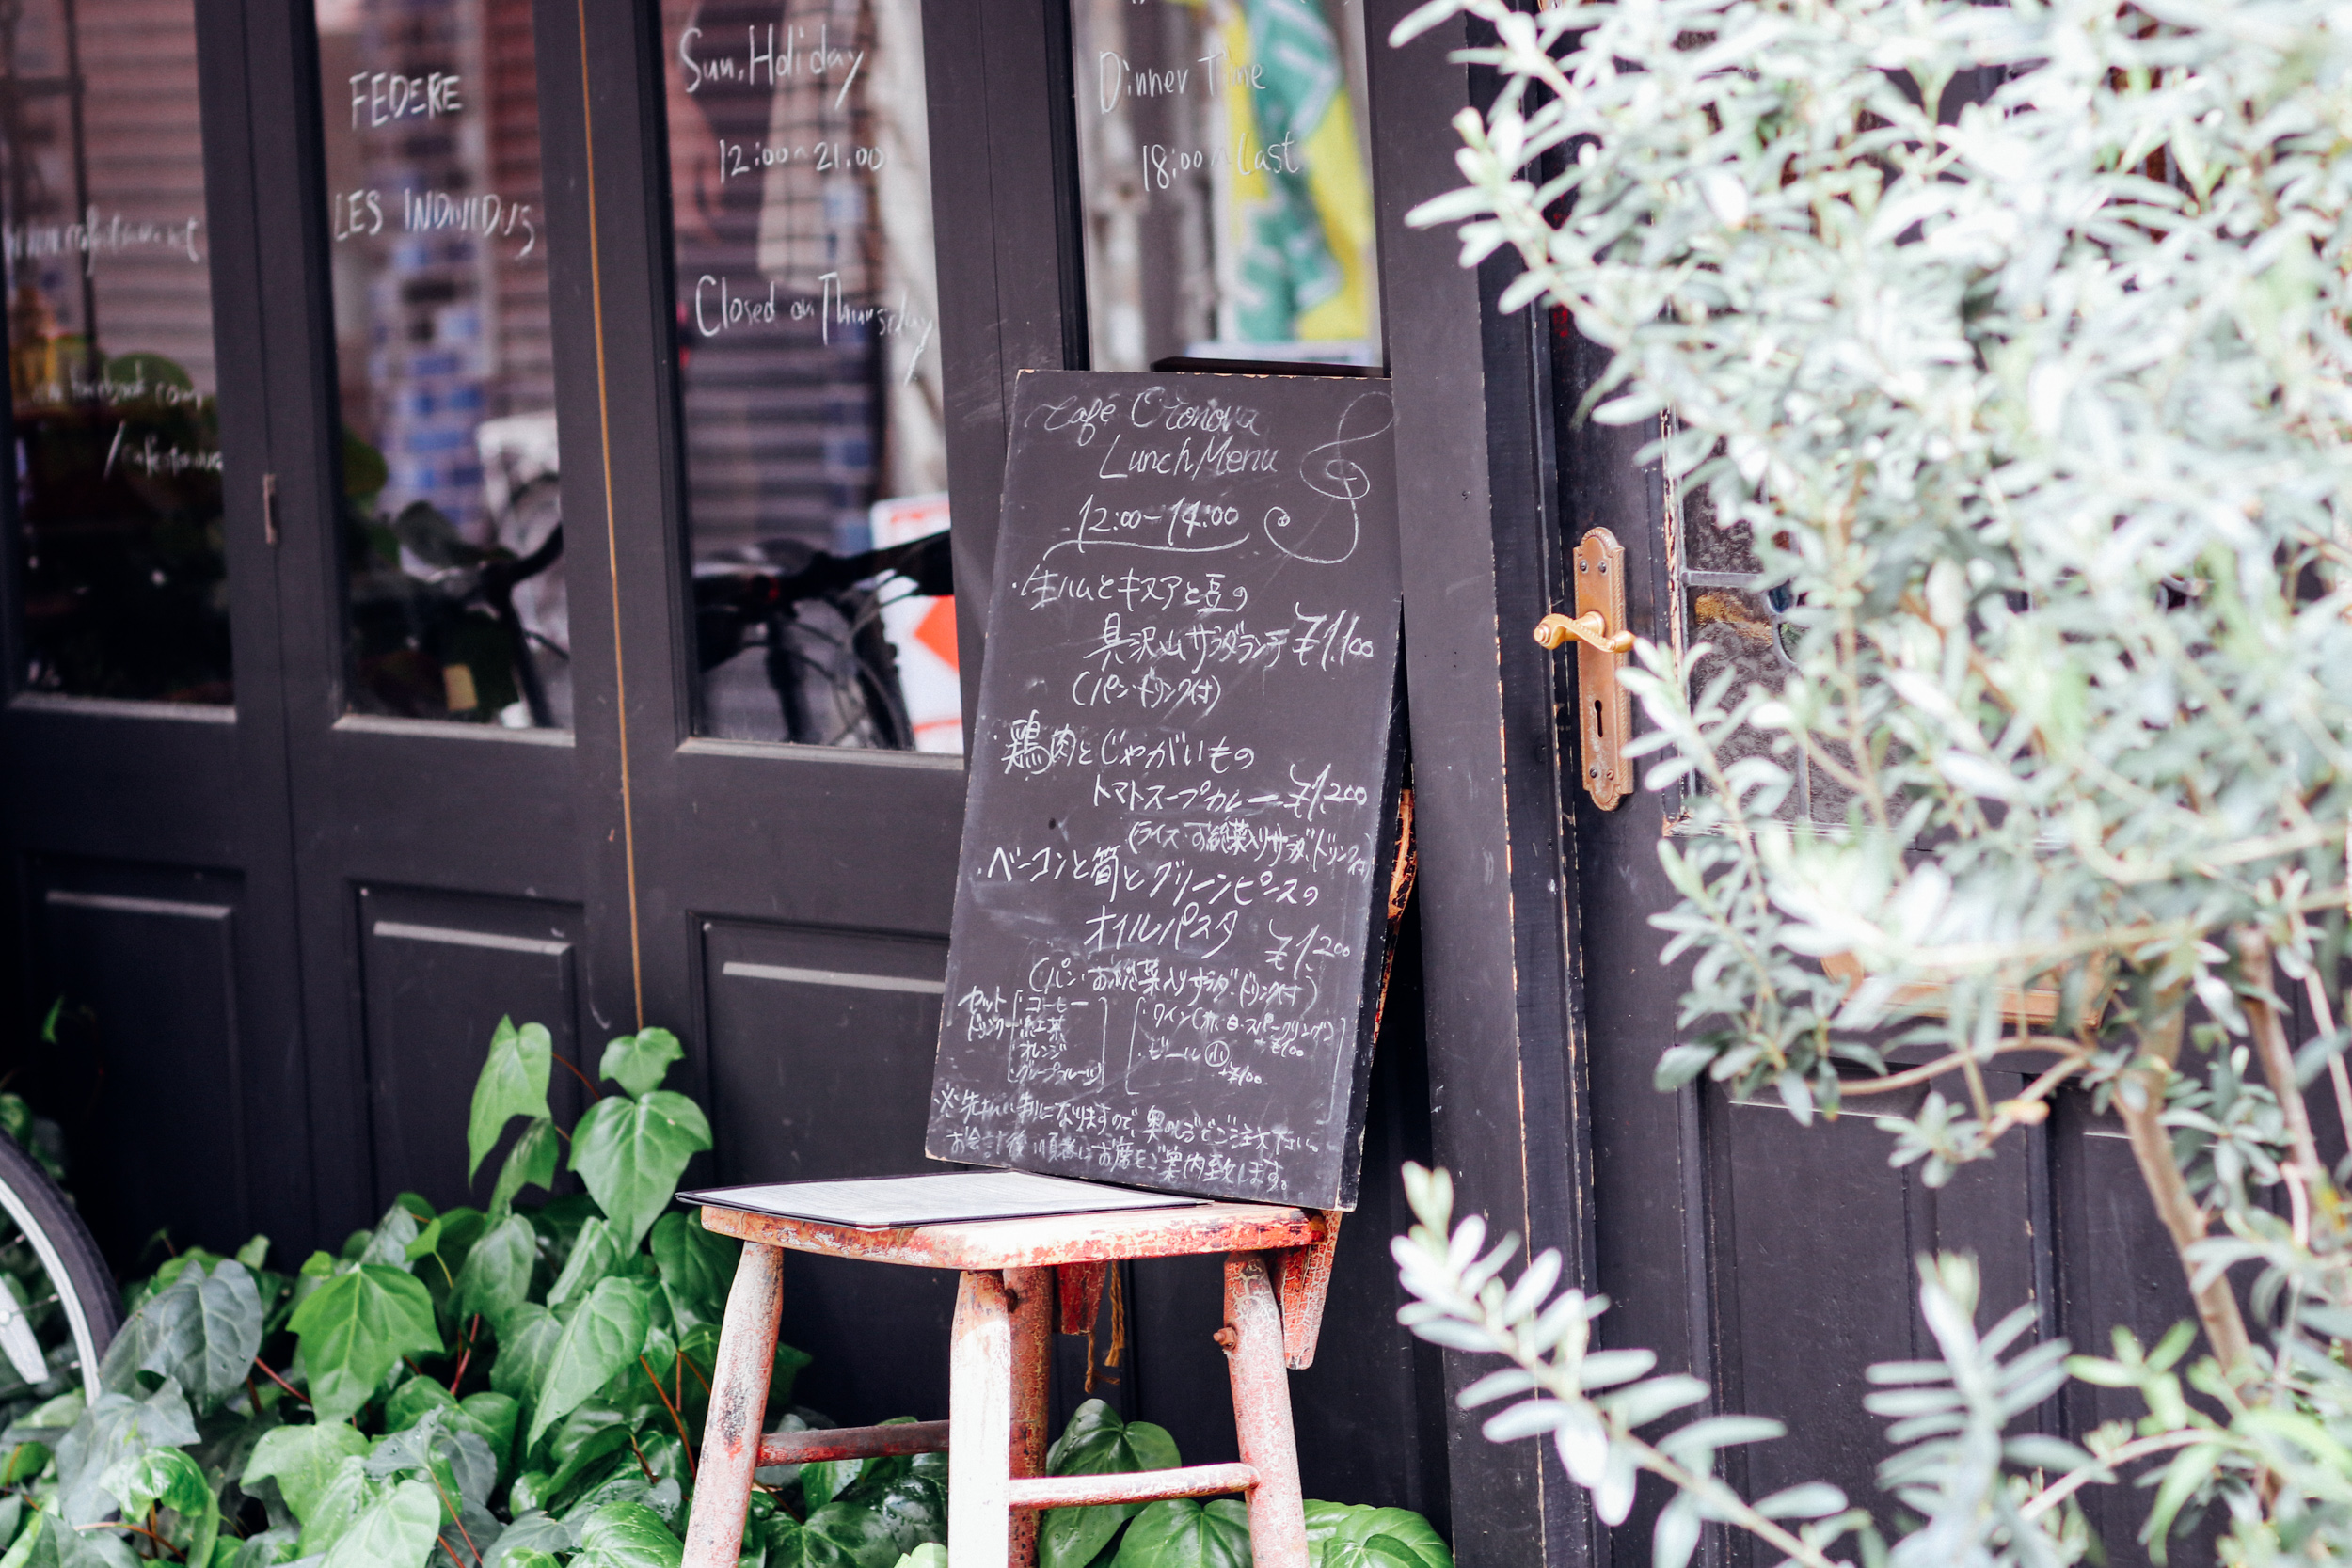 FEDERE
LES INDIVIDUS
Sun, Holiday
12:00~21.00
Closed on Thursday
Dinner Time
18:00~Last
Café Cronova
Lunch Menu
12:00-14:00
・生ハムとキヌアと豆の
具沢山サラダランチ ¥1,100
(パン・ドリンク付)
・鶏肉とじゃがいもの
トマトスープカレー ¥1,200
(ライス・お総菜入りサラダ・ドリンク付)
・ベーコンと筍とグリーンピースの
オイルパスタ ¥1,200
(パン・お総菜入りサラダ・ドリンク付)
セット
ドリンク
・コーヒー
・紅茶
・オレンジ
・グレープフルーツ
・ワイン(赤、白・スパークリング)
・ビール 小
+¥100
※先払い制になりますので、奥のレジでご注文下さい。
お会計後、順番にお席をご案内致します。